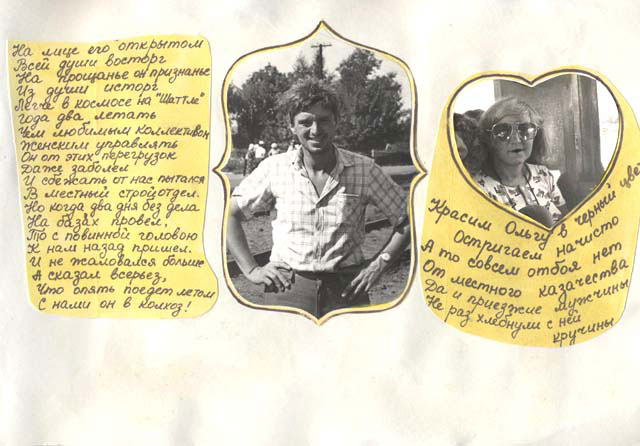 На лице его открытом
Всей души восторг
На прощанье он признанье
Из души исторг
Легче в космосе на "Шаттле"
года два летать
Чем любимым коллективом
Женским управлять
Он от этих перегрузок
Даже заболел
И сбежать от нас пытался
В местный стройотдел.
Но когда два дня без дела
На базах провел,
То с повинной головою
К нам назад пришел.
И не жаловался больше
А сказал всерьез,
Что опять поедет летом
С нами он в колхоз!
Красим Ольгу в черный цвет
Остригаем начисто
А то совсем отбоя нет
От местного казачества
Да и приезжие мужчины
Не раз хлебнули с ней
кручины